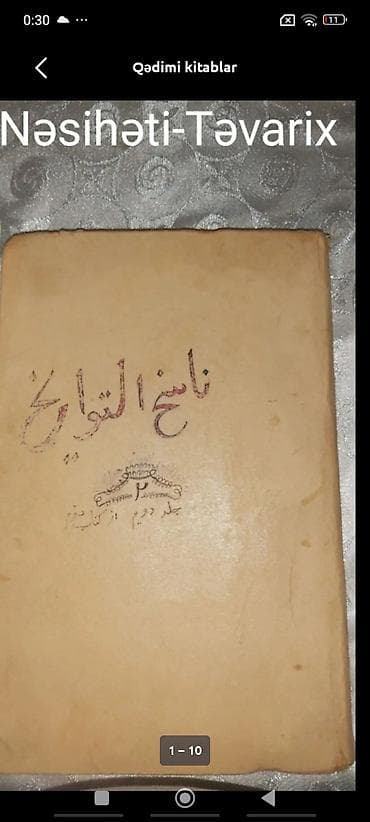 0:30 ... 11
Qədimi kitablar
Nəsihəti-Təvarix
ناسخ التواریخ
۲
جلد دویم از کتاب
1 – 10